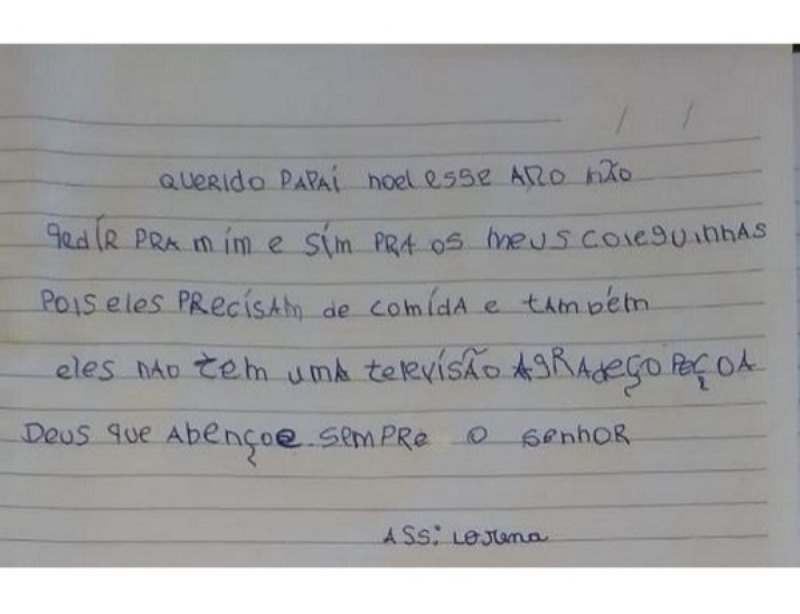 / /
QUERIDO PAPAí noel esse ANO NÃO
PedÍR PRA mím e Sím PRA OS meus coleguinhAS
POIS eles PRecísAm de comídA e tAmbém
eles NAO tem umA televísÃO AgRAdeÇO PeÇO A
Deus que Abençoe sempre o senhOR
ASS: Lorena